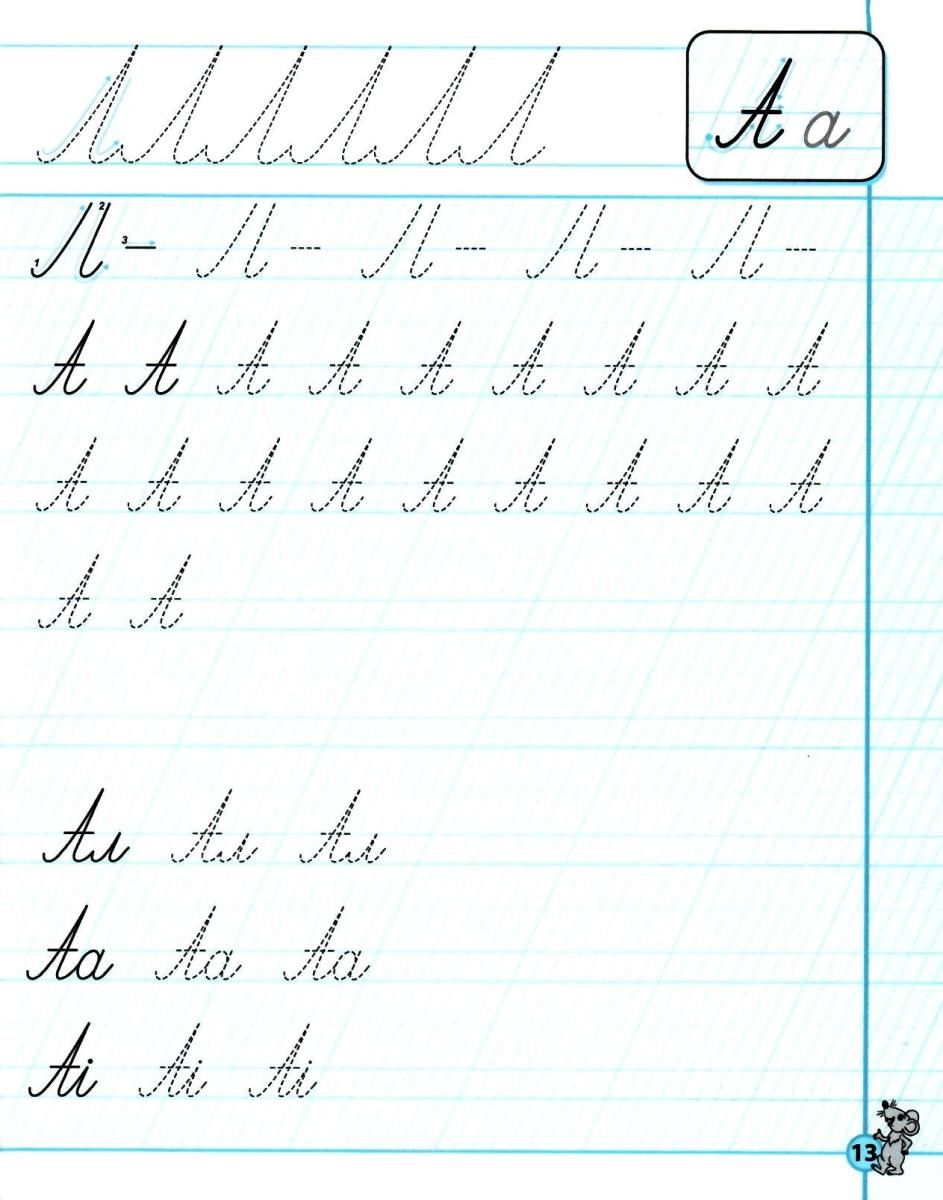 А а
1 2 3
А А А А А А А А А
А А А А А А А А А
А А
Ал Ал Ал
Аа Аа Аа
Аі Аі Аі
13